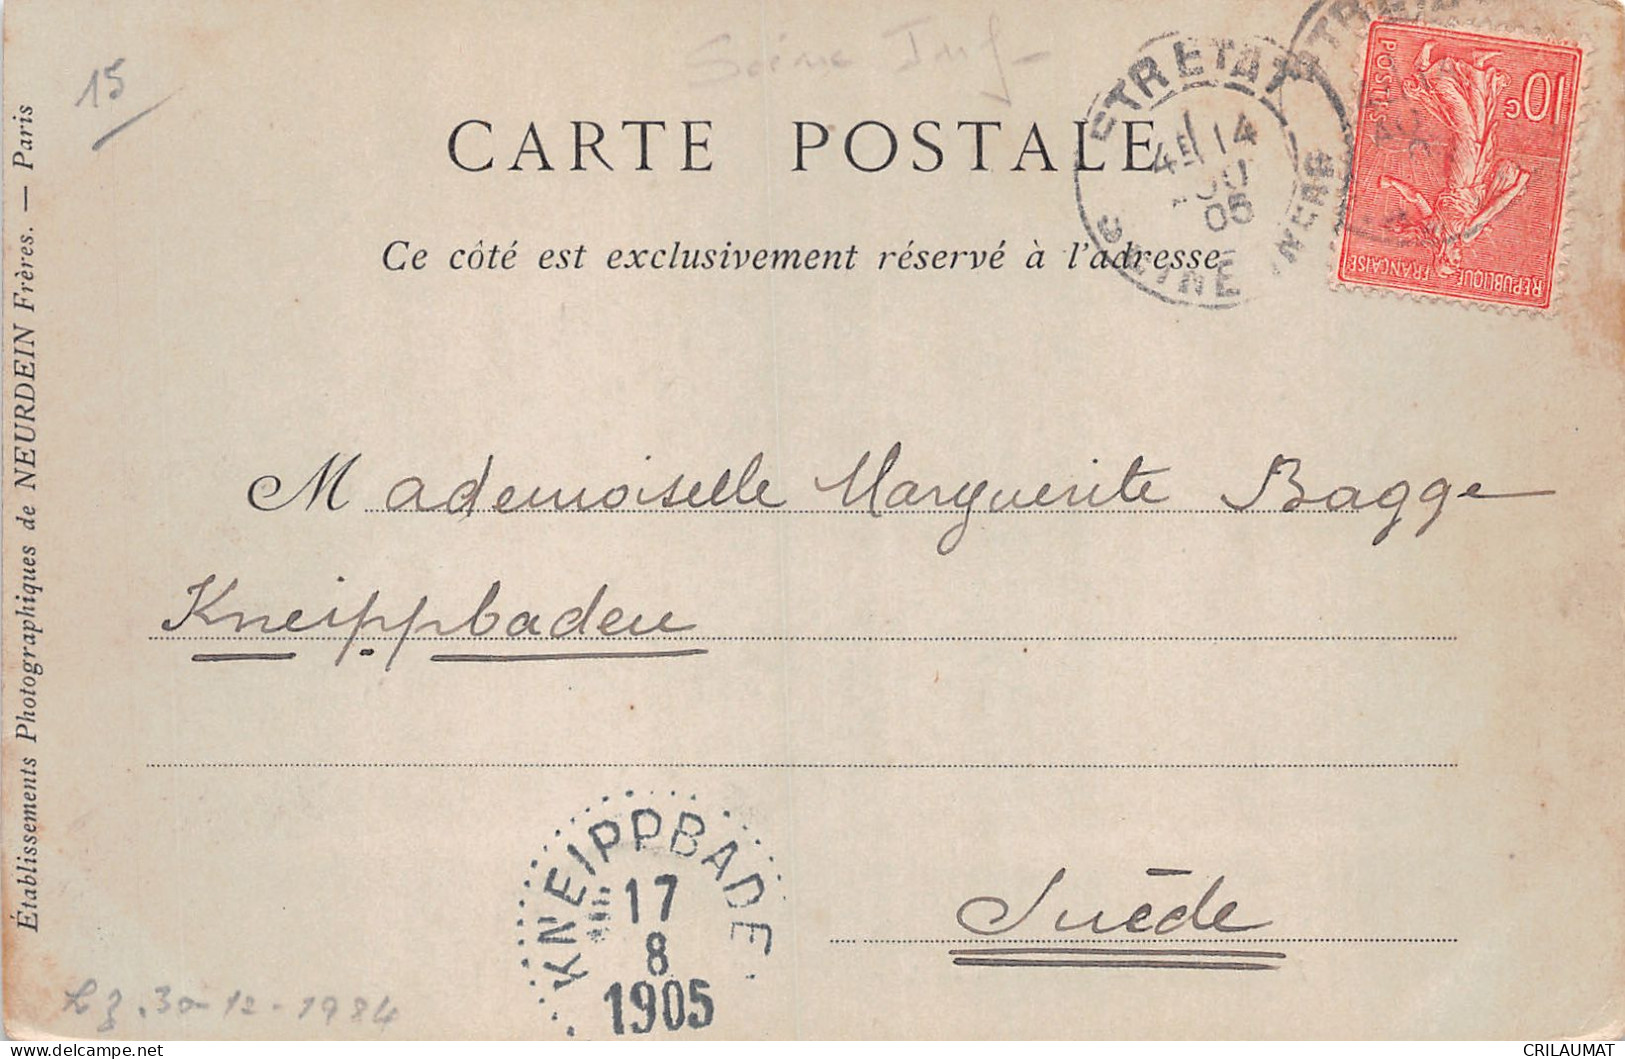 15
Seine Inf
CARTE POSTALE
Ce côté est exclusivement réservé à l'adresse
ETRETAT
4E 14
AOU
05
SEINE INFRE
10c
POSTES
REPUBLIQUE FRANÇAISE
Établissements Photographiques de NEURDEIN Frères. — Paris
Mademoiselle Marguerite Bagge
Kneippbaden
Suède
KNEIPPBADEN
17
8
1905
30-12-1984
CRILAUMAT